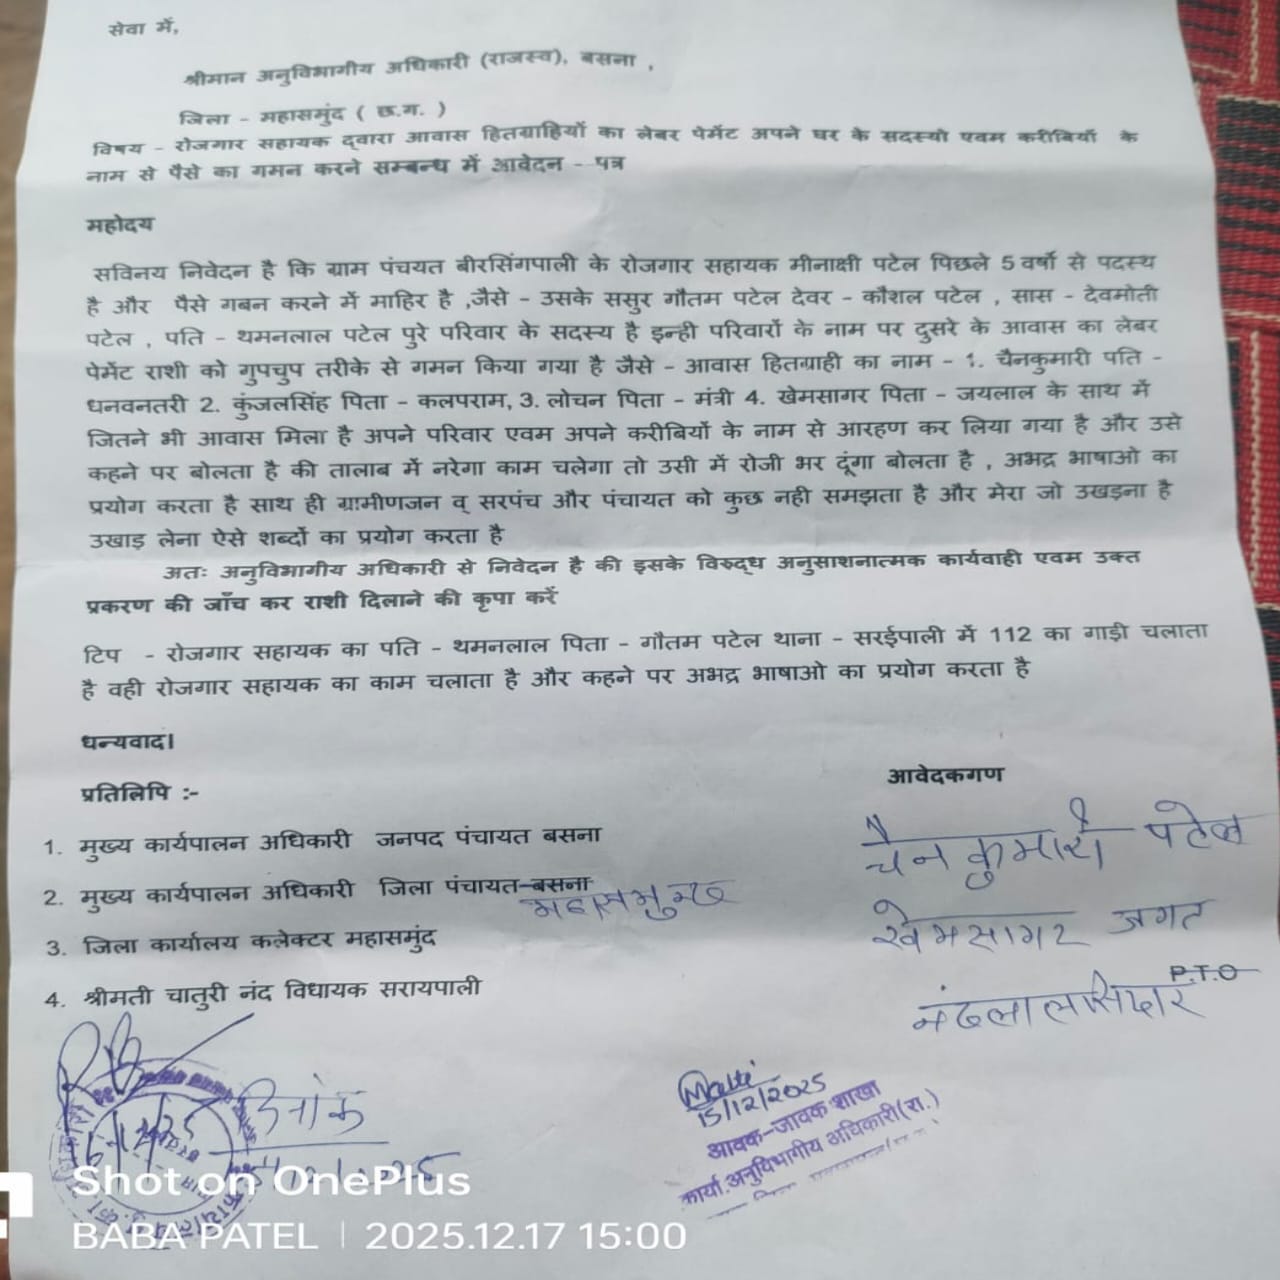 सेवा में,
श्रीमान अनुविभागीय अधिकारी (राजस्व), बसना ,
जिला - महासमुंद ( छ.ग. )
विषय - रोजगार सहायक द्वारा आवास हितग्राहियों का लेबर पेमेंट अपने घर के सदस्यो एवम करीबियों के
नाम से पैसे का गमन करने सम्बन्ध में आवेदन - पत्र
महोदय
सविनय निवेदन है कि ग्राम पंचयत बीरसिंगपाली के रोजगार सहायक मीनाक्षी पटेल पिछले 5 वर्षो से पदस्थ
है और पैसे गबन करने में माहिर है ,जैसे - उसके ससुर गौतम पटेल देवर - कौशल पटेल , सास - देवमोती
पटेल , पति - थमनलाल पटेल पुरे परिवार के सदस्य है इन्ही परिवारों के नाम पर दुसरे के आवास का लेबर
पेमेंट राशी को गुपचुप तरीके से गमन किया गया है जैसे - आवास हितग्राही का नाम - 1. चैनकुमारी पति -
धनवनतरी 2. कुंजलसिंह पिता - कलपराम, 3. लोचन पिता - मंत्री 4. खेमसागर पिता - जयलाल के साथ में
जितने भी आवास मिला है अपने परिवार एवम अपने करीबियों के नाम से आरहण कर लिया गया है और उसे
कहने पर बोलता है की तालाब में नरेगा काम चलेगा तो उसी में रोजी भर दूंगा बोलता है , अभद्र भाषाओ का
प्रयोग करता है साथ ही ग्रामीणजन व् सरपंच और पंचायत को कुछ नही समझता है और मेरा जो उखड़ना है
उखाड़ लेना ऐसे शब्दों का प्रयोग करता है
अतः अनुविभागीय अधिकारी से निवेदन है की इसके विरुद्ध अनुसाशनात्मक कार्यवाही एवम उक्त
प्रकरण की जाँच कर राशी दिलाने की कृपा करें
टिप - रोजगार सहायक का पति - थमनलाल पिता - गौतम पटेल थाना - सरईपाली में 112 का गाड़ी चलाता
है वही रोजगार सहायक का काम चलाता है और कहने पर अभद्र भाषाओ का प्रयोग करता है
धन्यवाद।
प्रतिलिपि :-
आवेदकगण
1. मुख्य कार्यपालन अधिकारी जनपद पंचायत बसना
चैन कुमारी पटेल
2. मुख्य कार्यपालन अधिकारी जिला पंचायत बसना
महासमुन्द
खेमसागर जगत
3. जिला कार्यालय कलेक्टर महासमुंद
P.T.O
4. श्रीमती चातुरी नंद विधायक सरायपाली
नंदलाल सिदार
15/12/2025
आवक-जावक शाखा
कार्या.अनुविभागीय अधिकारी(रा.)
Shot on OnePlus
BABA PATEL | 2025.12.17 15:00